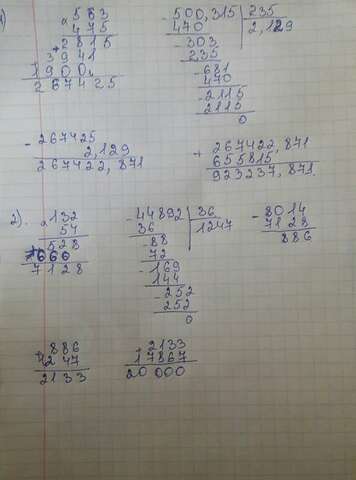 1) × 563 - 500,315 | 235
475 470 | 2,129
+ 2815 - 303
3941 235
1900 - 681
267425 470
- 2115
2115
0
- 267425 + 267422,871
2,129 655815
267422,871 923237,871.
2). × 132 - 44892 | 36 - 8014
54 36 | 1247 7128
528 - 88 886
+ 660 72
7128 - 169
144
- 252
252
0
+ 886 + 2133
1247 17867
2133 20000